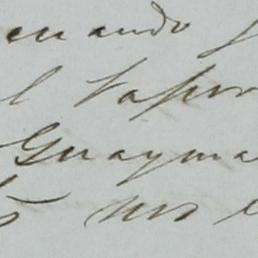 cuando
l Vapor
Guayma
nos